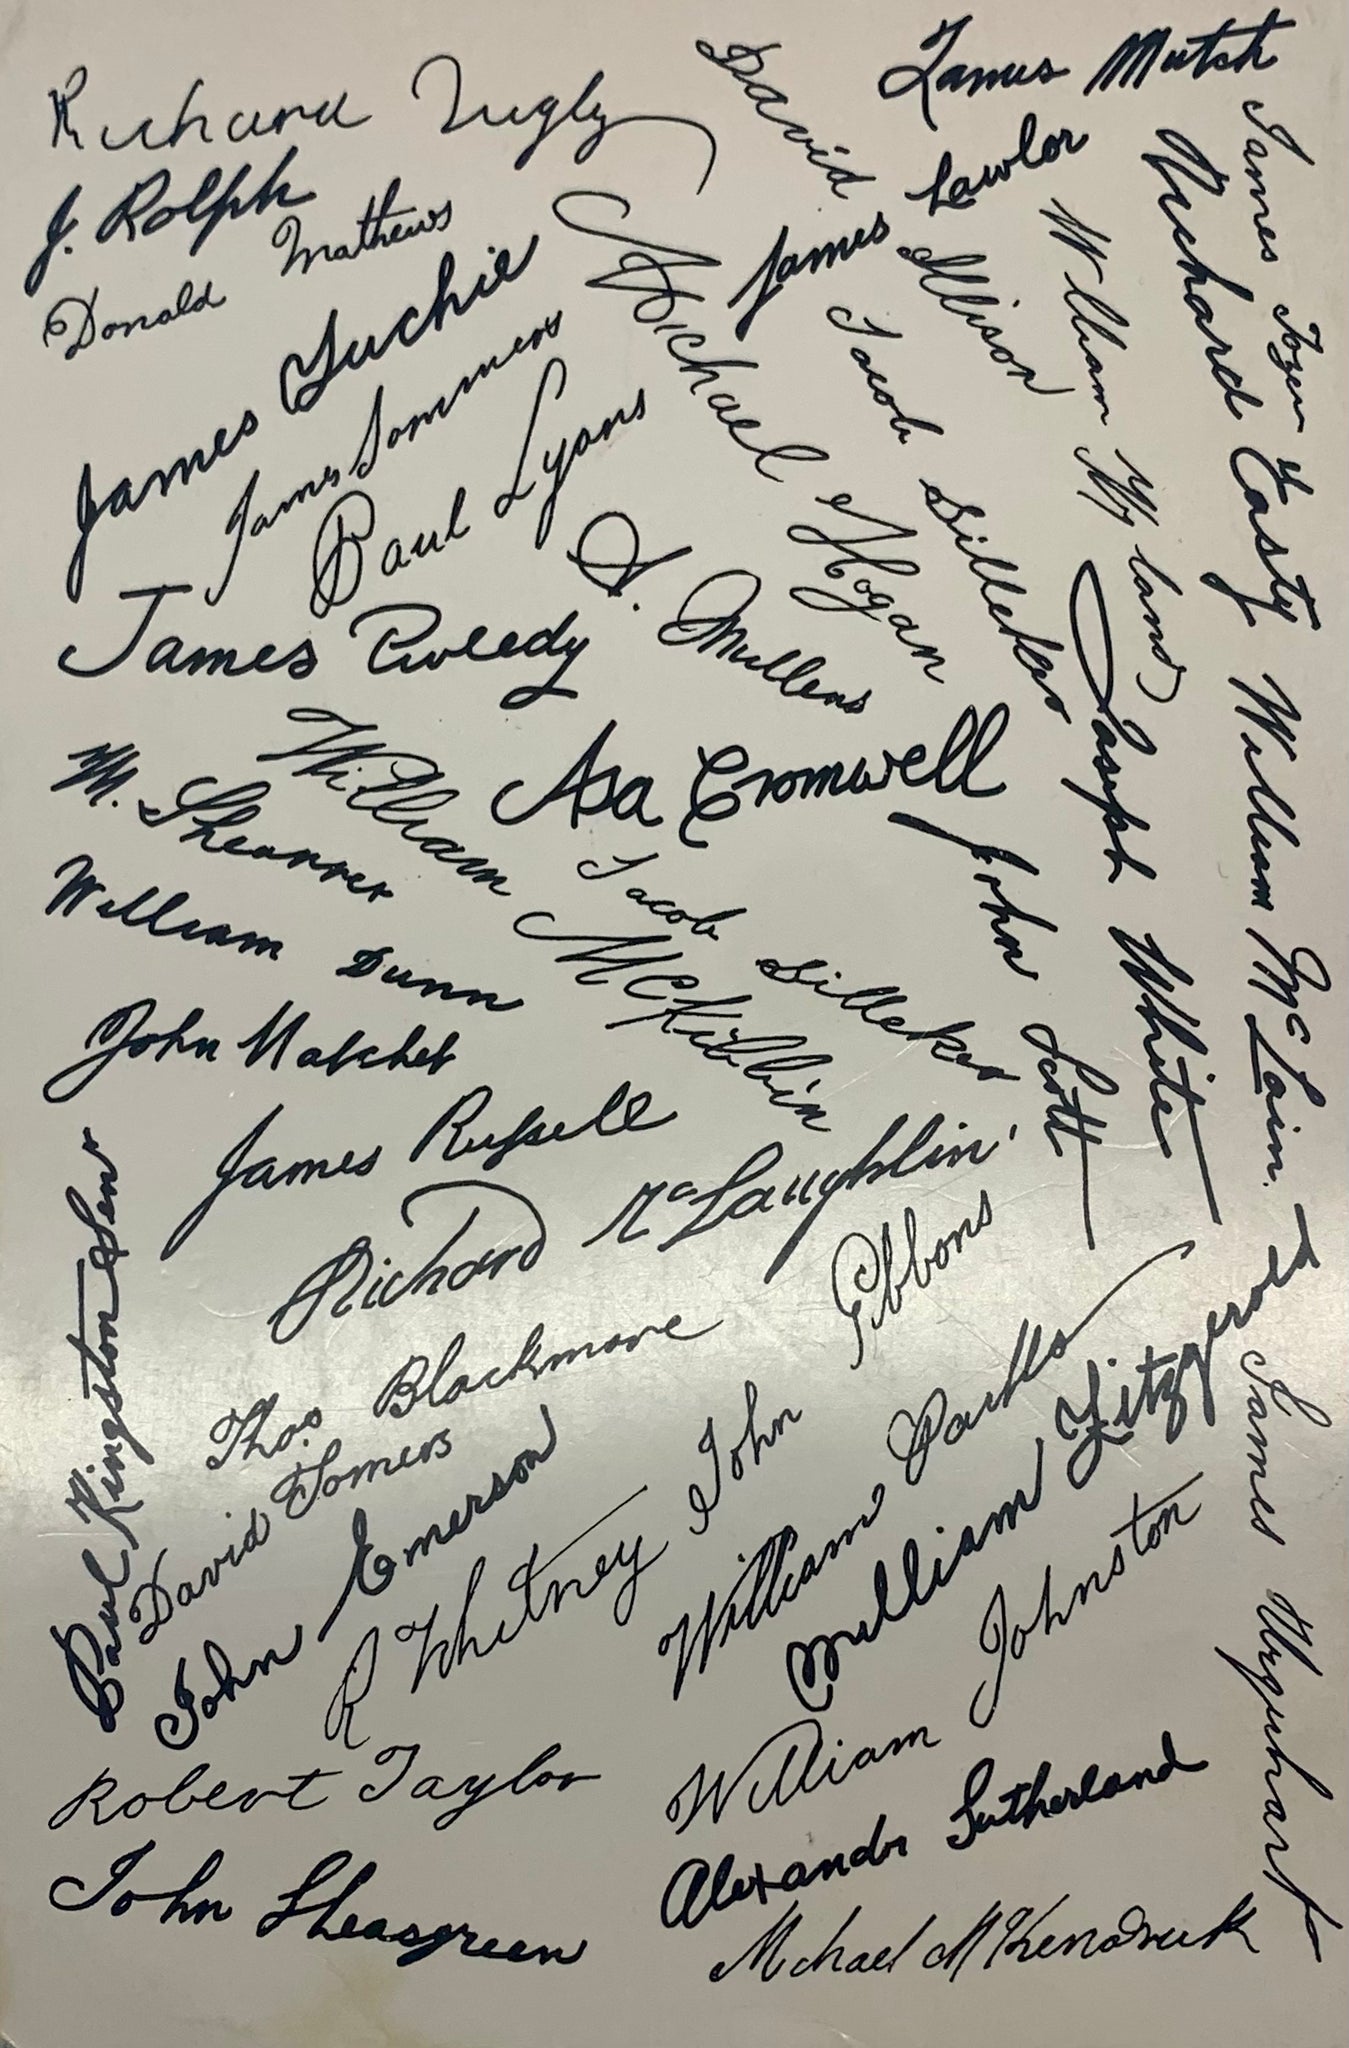 Richard
J. Rolph
Donald Mathews
James
James Sommers
Paul Lyons
James Tweedy
M. Shearrer
William Dunn
John
James Russell
Richard McLaughlin
Paul Kingston Senr
Thos Blackmore
David Somers
John Emerson
R Whitney
Robert Taylor
John Sheasgreen
David Allison
James Mutch
James Lawlor
Michael Hogan
S. Mullens
Asa Cromwell
William McKibbin
Jacob Silleker
Jacob Silleker
William
James
Richard Easty
Joseph White
William McLain.
John Scott
John
William
William Fitzgerald
William Johnston
Alexandr Sutherland
James Urquhart
Michael McKendrick